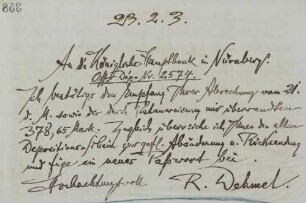 338
23.2.3.
An die Königliche Hauptbank in Nürnberg.
Off. Dep. No. 2574.
Ich bestätige den Empfang Ihrer Abrechnung vom 21.
d. M. sowie der durch Postanweisung mir übersandten
378,65 Mark. Zugleich übersende ich Ihnen den alten
Depositenschein zur gefl. Abänderung u. Rücksendung
und füge ein neues Passwort bei
Hochachtungsvoll
R. Dehmel.